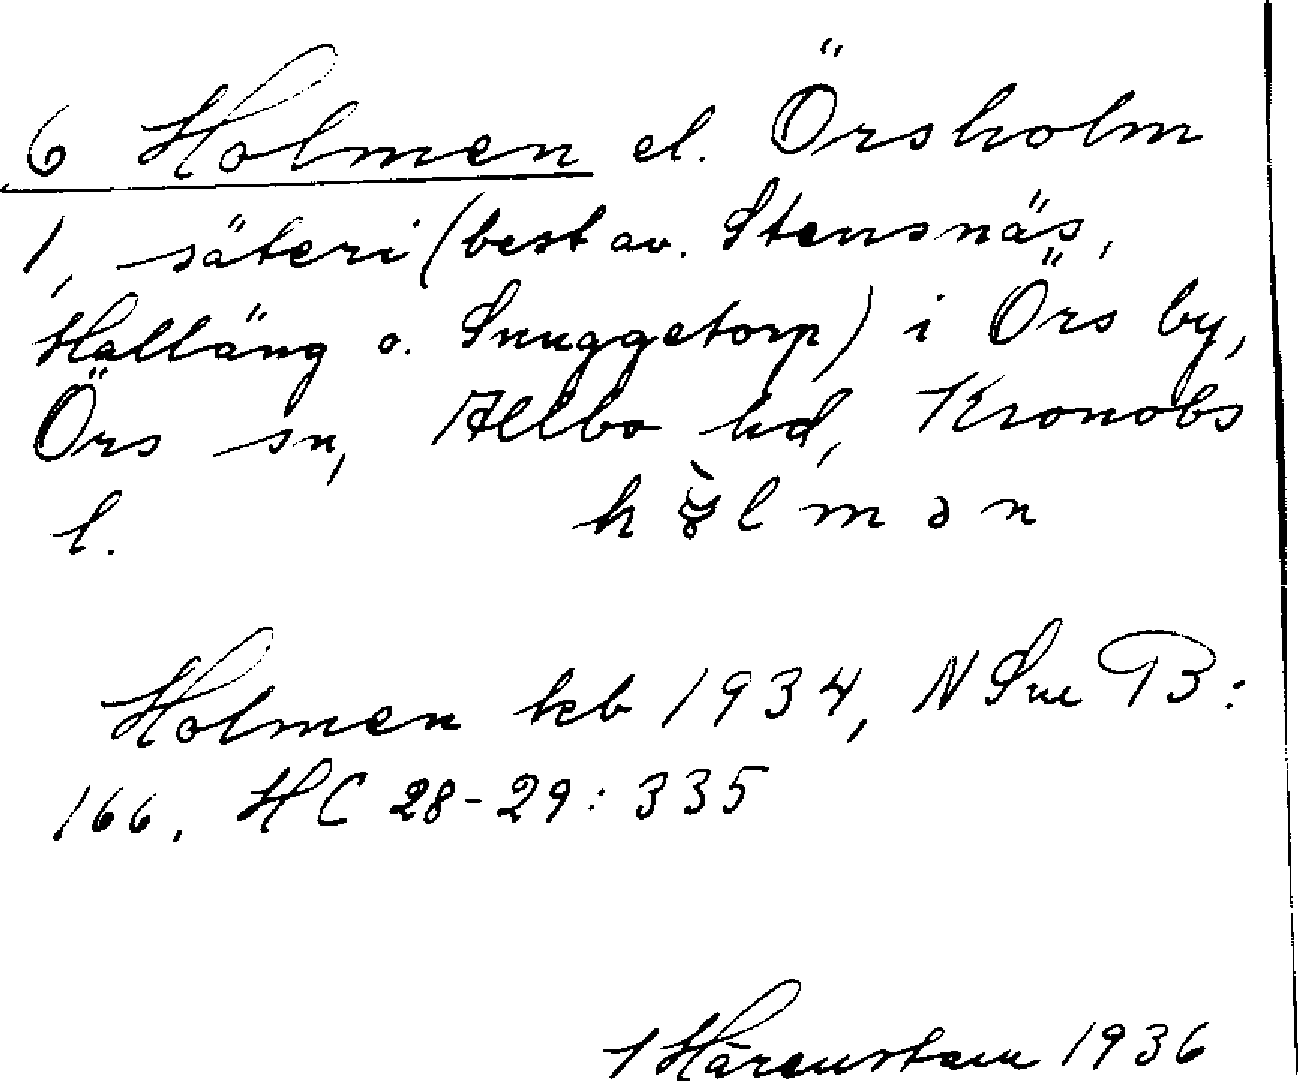 6 Holmen el. Örsholm
1, säteri (best av. Stensnäs,
Halläng o. Snuggetorp) i Örs by,
Örs sn, Allbo hd, Kronobs
l. hòlmən
Holmen kb 1934, N Sme B:
166. HC 28-29: 335
Hårenstam 1936